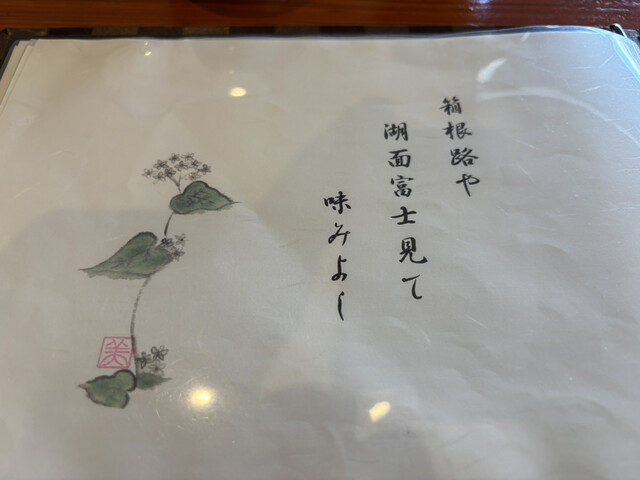 箱根路や
湖面富士見て
味みよし
美